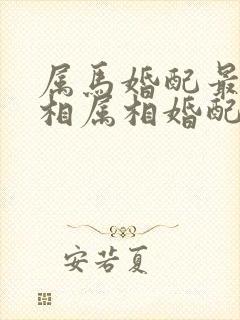 属马婚配最
相属相婚配
安若夏